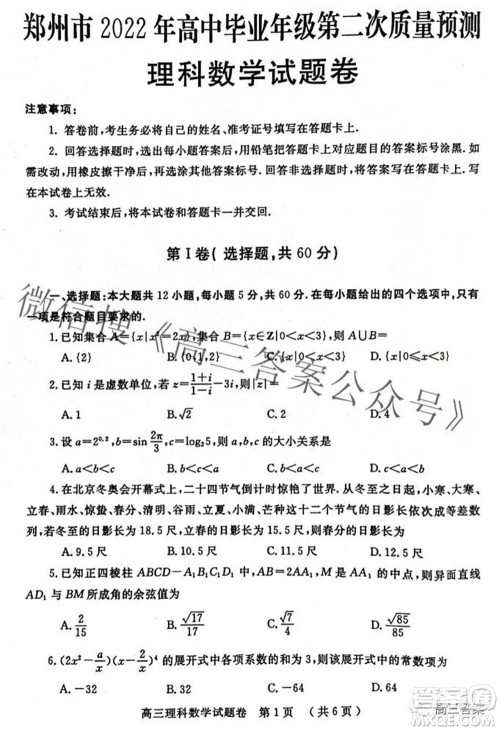 郑州市 2022 年高中毕业年级第二次质量预测
理科数学试题卷
注意事项：
1. 答卷前,考生务必将自己的姓名、准考证号填写在答题卡上.
2. 回答选择题时,选出每小题答案后,用铅笔把答题卡对应题目的答案标号涂黑.如
需改动,用橡皮擦干净后,再选涂其他答案标号.回答非选择题时,将答案写在答题卡上.写
在本试卷上无效.
3. 考试结束后,将本试卷和答题卡一并交回.
第 I 卷( 选择题,共 60 分)
一、选择题：本大题共 12 小题,每小题 5 分,共 60 分.在每小题给出的四个选项中,只有一项是
符合题目要求的.
1.已知集合A={x|x²=2x},集合B={x∈Z|0<x<3},则A∪B=
A.{2} B.{0,2} C.{1,2} D.{0,1,2}
2.已知 i 是虚数单位,若 z=(1+i)/(1-i)-3i,则|z|=
A.1 B.√2 C.2 D.4
3.设 a=2^0.2,b=sin(2π/3),c=log₂5,则 a,b,c 的大小关系是
A.a<b<c B.b<a<c C.c<a<b D.b<c<a
4.在北京冬奥会开幕式上,二十四节气倒计时惊艳了世界.从冬至之日起,小寒、大寒、
立春、雨水、惊蛰、春分、清明、谷雨、立夏、小满、芒种这十二个节气日影长依次成等差数
列,若冬至的日影长为 18.5 尺,立春的日影长为 15.5 尺,则春分的日影长为
A.9.5 尺 B.10.5 尺 C.11.5 尺 D.12.5 尺
5.已知正四棱柱 ABCD-A₁B₁C₁D₁ 中,AB=2AA₁,M 为 AA₁ 的中点,则异面直线
AD₁ 与 BM 所成角的余弦值为
A.2/15 B.√17/17 C.4/17 D.√85/85
6.(2x²-a/x)(x-2/x)⁴ 的展开式中各项系数的和为 3,则该展开式中的常数项为
A.-32 B.32 C.-64
高三理科数学试题卷 第 1 页 (共 6 页)
微信搜《高三答案公众号》
高三答案